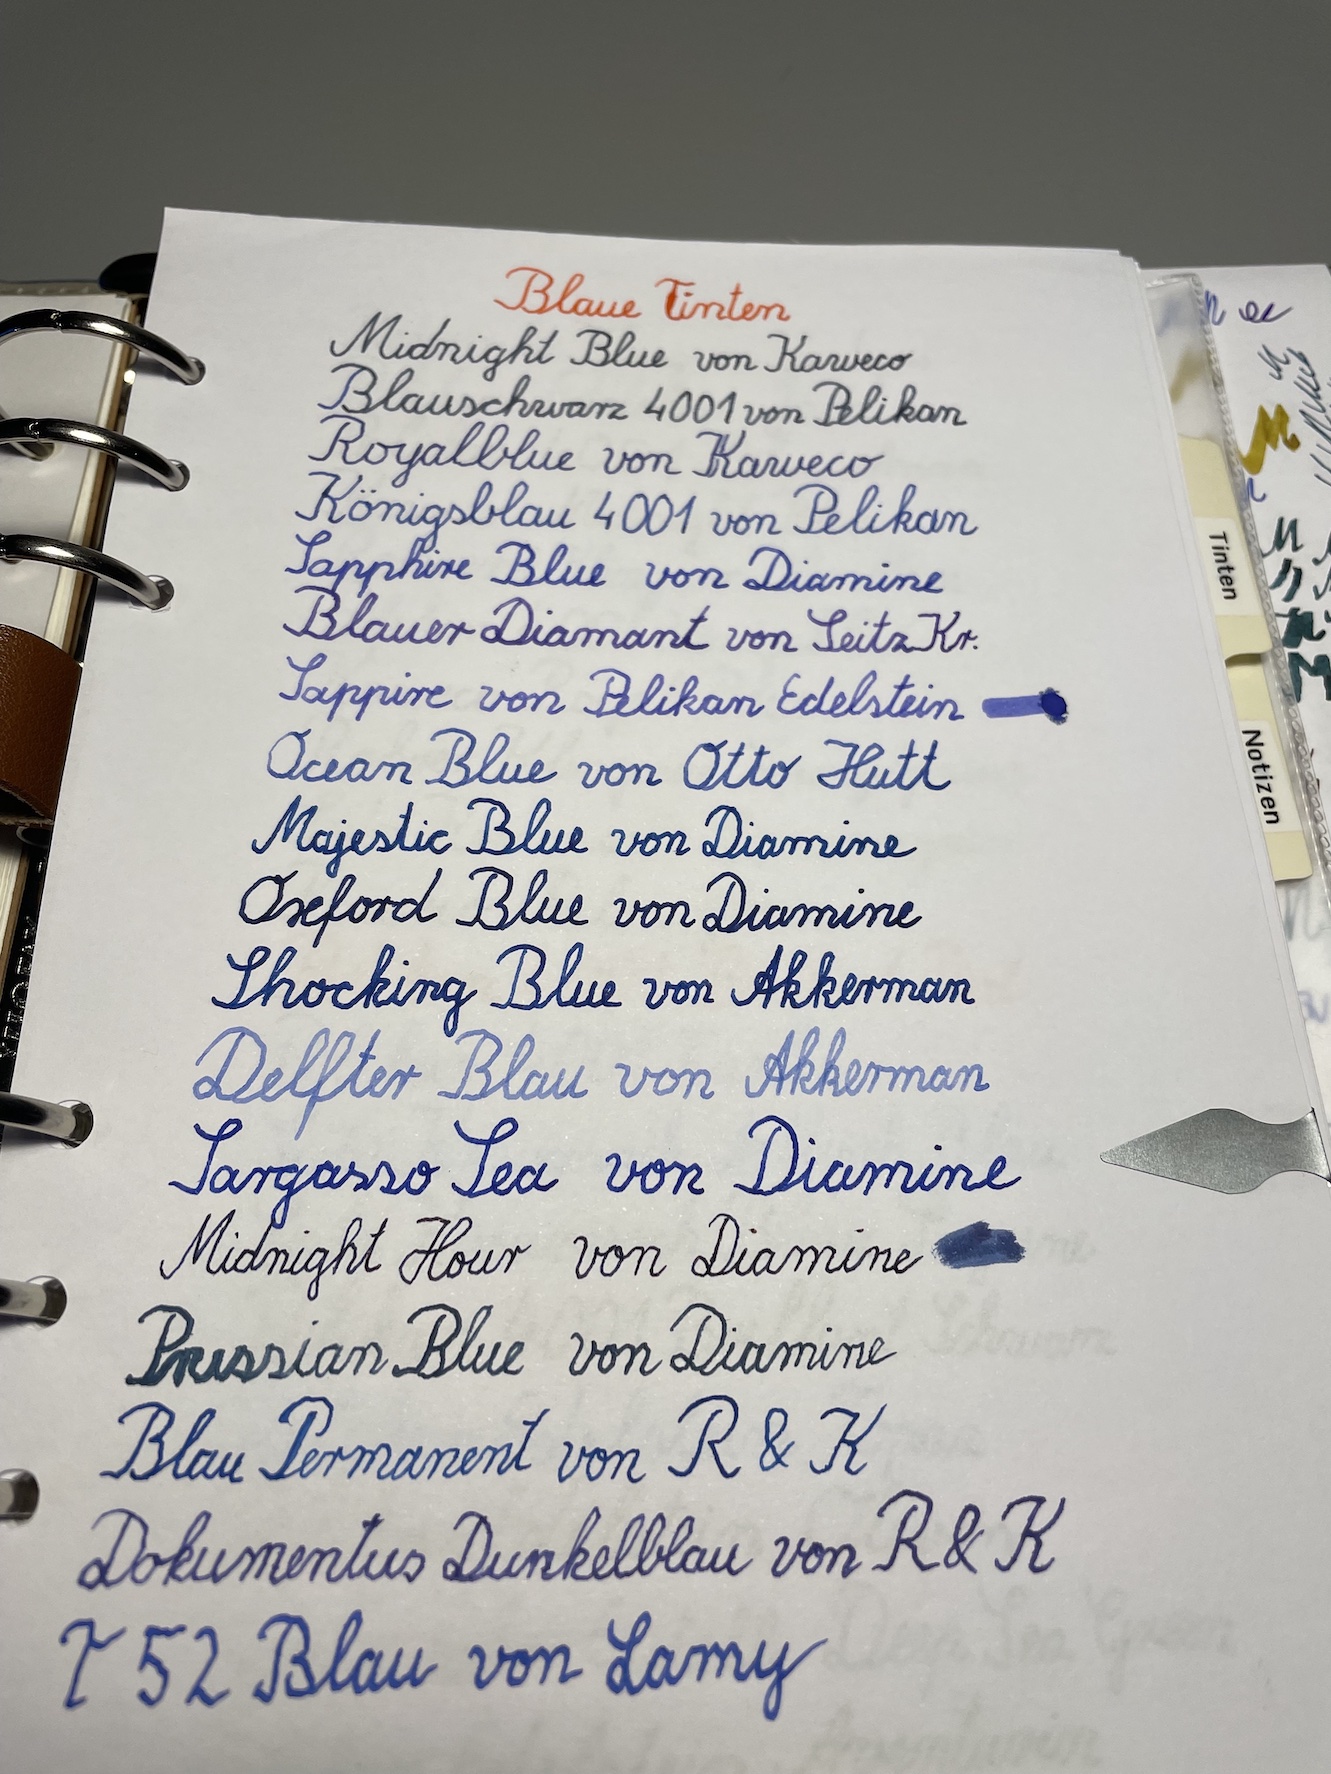 Blaue Tinten
Midnight Blue von Kaweco
Blauschwarz 4001 von Pelikan
Royalblue von Kaweco
Königsblau 4001 von Pelikan
Sapphire Blue von Diamine
Blauer Diamant von Seitz Kr.
Sappire von Pelikan Edelstein
Ocean Blue von Otto Hutt
Majestic Blue von Diamine
Oxford Blue von Diamine
Shocking Blue von Akkerman
Delfter Blau von Akkerman
Sargasso Sea von Diamine
Midnight Hour von Diamine
Prussian Blue von Diamine
Blau Permanent von R & K
Dokumentus Dunkelblau von R & K
T 52 Blau von Lamy
Tinten
Notizen